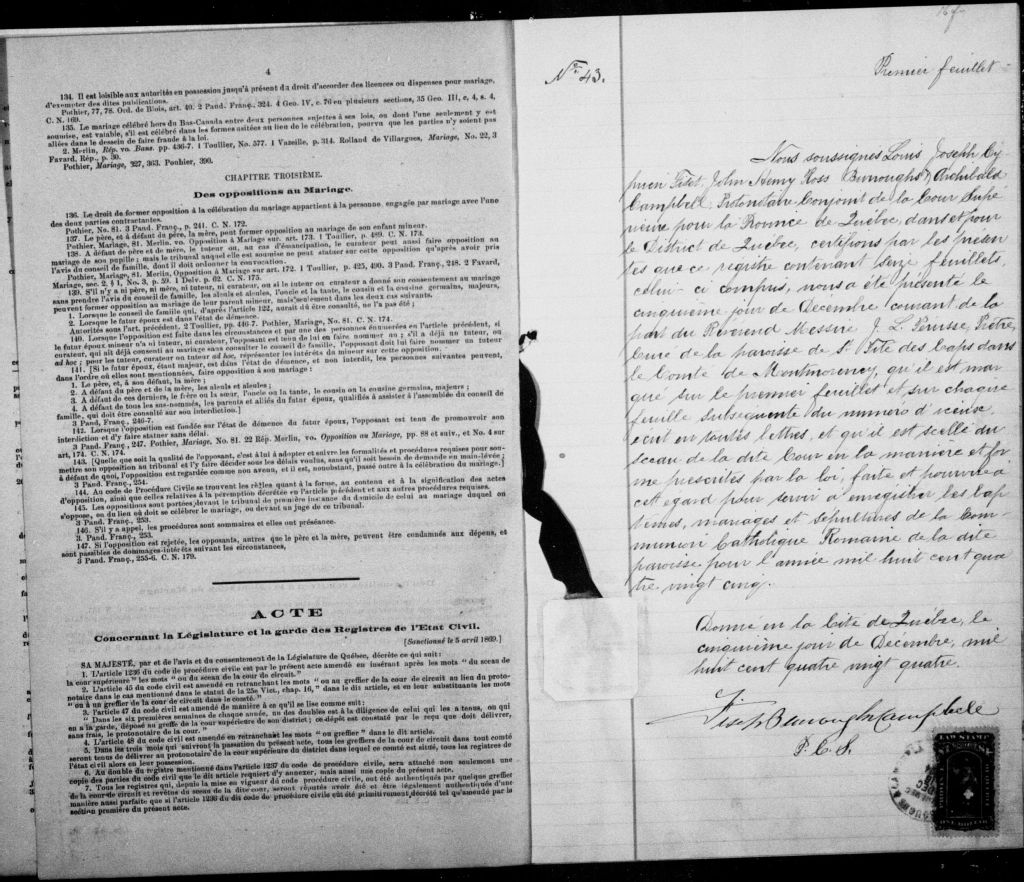 4
134. Il est loisible aux autorités en possession jusqu'à présent du droit d'accorder des licences ou dispenses pour mariage,
d'exempter des dites publications.
Pothier, 77, 78. Ord. de Blois, art. 40. 2 Pand. Franç., 324. 4 Geo. IV, c. 76 en plusieurs sections, 35 Geo. III, c. 4, s. 4,
C. N. 169.
135. Le mariage célébré hors du Bas-Canada entre deux personnes sujettes à ses lois, ou dont l'une seulement y est
soumise, est valable, s'il est célébré dans les formes usitées au lieu de la célébration, pourvu que les parties n'y soient pas
allées dans le dessein de faire fraude à la loi.
2. Merlin, Rép. vo. Bans. pp. 436-7. 1 Toullier, No. 577. 1 Vazeille, p. 314. Rolland de Villargues, Mariage, No. 22, 3
Favard, Rép., p. 30.
Pothier, Mariage, 227, 363. Pouhier, 390.
CHAPITRE TROISIÈME.
Des oppositions au Mariage.
136. Le droit de former opposition à la célébration du mariage appartient à la personne engagée par mariage avec l'une
des deux parties contractantes.
Pothier, No. 81. 3 Pand. Franç., p. 241. C. N. 172.
137. Le père, et à défaut du père, la mère, peut former opposition au mariage de son enfant mineur.
Pothier, Mariage, 81. Merlin. vo. Opposition à Mariage sur. art. 173. 1 Toullier, p. 489. C. N. 173.
138. A défaut de père et de mère, le tuteur ou, au cas d'émancipation, le curateur peut aussi faire opposition au
mariage de son pupille; mais le tribunal auquel elle est soumise ne peut statuer sur cette opposition qu'après avoir pris
l'avis du conseil de famille, dont il doit ordonner la convocation.
Pothier, Mariage, 81. Merlin, Opposition à Mariage sur art. 172. 1 Toullier, p. 425, 490. 3 Pand. Franç., 248. 2 Favard,
Mariage, sec. 2, § 1, No. 3, p. 59. 1 Delv. p. 62. C. N. 175.
139. S'il n'y a ni père, ni mère, ni tuteur, ni curateur, ou si le tuteur ou curateur a donné son consentement au mariage
sans prendre l'avis du conseil de famille, les aïeuls et aïeules, l'oncle et la tante, le cousin et la cousine germains, majeurs,
peuvent former opposition au mariage de leur parent mineur, mais seulement dans les deux cas suivants.
1. Lorsque le conseil de famille qui, d'après l'article 122, aurait dû être consulté, ne l'a pas été;
2. Lorsque le futur époux est dans l'état de démence.
Autorités sous l'art. précédent. 2 Toullier, pp. 446-7. Pothier, Mariage, No. 81. C. N. 174.
140. Lorsque l'opposition est faite dans les circonstances et par une des personnes énumérées en l'article précédent, si
le futur époux mineur n'a ni tuteur, ni curateur, l'opposant est tenu de lui en faire nommer un; s'il a déjà un tuteur, ou
curateur, qui ait déjà consenti au mariage sans consulter le conseil de famille, l'opposant doit lui faire nommer un tuteur
ad hoc; pour les tuteur, curateur ou tuteur ad hoc, représenter les intérêts du mineur sur cette opposition.
141. [Si le futur époux, étant majeur, est dans l'état de démence, et non interdit, les personnes suivantes peuvent,
dans l'ordre où elles sont mentionnées, faire opposition à son mariage:
1. Le père, et, à son défaut, la mère;
2. A défaut du père et de la mère, les aïeuls et aïeules;
3. A défaut de ces derniers, le frère ou la sœur, l'oncle ou la tante, le cousin ou la cousine germains, majeurs;
4. A défaut de tous les sus-nommés, les parents et alliés du futur époux, qualifiés à assister à l'assemblée du conseil de
famille, qui doit être consulté sur son interdiction.]
3 Pand. Franç., 246-7.
142. Lorsque l'opposition est fondée sur l'état de démence du futur époux, l'opposant est tenu de promouvoir son
interdiction et d'y faire statuer sans délai.
3 Pand. Franç., 247. Pothier, Mariage, No. 81. 22 Rép. Merlin, vo. Opposition au Mariage, pp. 88 et suiv., et No. 4 sur
art, 174. C. N. 174.
143. [Quelle que soit la qualité de l'opposant, c'est à lui à adopter et suivre les formalités et procédures requises pour sou-
mettre son opposition au tribunal et l'y faire décider sous les délais voulus, sans qu'il soit besoin de demande en main-levée;
à défaut de quoi, l'opposition est regardée comme non avenu, et il est, nonobstant, passé outre à la célébration du mariage.]
3 Pand. Franç., 254.
144. Au code de Procédure Civile se trouvent les règles quant à la forme, au contenu et à la signification des actes
d'opposition, ainsi que celles relatives à la péremption décrétée en l'article précédent et aux autres procédures requises.
145. Les oppositions sont portées devant le tribunal de première instance du domicile de celui au mariage duquel on
s'oppose, ou du lieu où doit se célébrer le mariage, ou devant un juge de ce tribunal.
3 Pand. Franç., 253.
146. S'il y a appel, les procédures sont sommaires et elles ont préséance.
3. Pand. Franç., 253.
147. Si l'opposition est rejetée, les opposants, autres que le père et la mère, peuvent être condamnés aux dépens, et
sont passibles de dommages-intérêts suivant les circonstances,
3 Pand. Franç., 255-6. C. N. 179.
ACTE
Concernant la Législature et la garde des Registres de l'Etat Civil.
[Sanctionné le 5 avril 1869.]
SA MAJESTÉ, par et de l'avis et du consentement de la Législature de Québec, décrète ce qui suit:
1. L'article 1236 du code de procédure civile est par le présent acte amendé en insérant après les mots "du sceau de
la cour supérieure" les mots "ou du sceau de la cour de circuit."
2. L'article 45 du code civil est amendé en retranchant les mots "ou au greffier de la cour de circuit au lieu du proto-
notaire dans le cas mentionné dans le statut de la 25e Vict., chap. 16," dans le dit article, et en leur substituant les mots
"ou à un greffier de la cour de circuit dans le comté."
3. l'article 47 du code civil est amendé de manière à ce qu'il se lise comme suit:
"Dans les six premières semaines de chaque année, un des doubles est à la diligence de celui qui les a tenus, on qui
en a la garde, déposé au greffe de la cour supérieure de son district; ce dépôt est constaté par le reçu que doit délivrer,
sans frais, le protonotaire de la cour."
4. L'article 48 du code civil est amendé en retranchant les mots "ou greffier" dans le dit article.
5. Dans les trois mois qui suivront la passation du présent acte, tous les greffiers de la cour de circuit dans tout comté
seront tenus de délivrer au protonotaire de la cour supérieure du district dans lequel ce comté est situé, tous les registres de
l'état civil alors en leur possession.
6. Au double du registre mentionné dans l'article 1237 du code de procédure civile, sera attaché non seulement une
copie des parties du code civil que le dit article requiert d'y annexer, mais aussi une copie du présent acte.
7. Tous les registres qui, depuis la mise en vigueur du code procédure civile, ont été authentiqués par quelque greffier
de la cour de circuit et revêtus du sceau de la dite cour, seront réputés avoir été et être légalement authentiqués d'une
manière aussi parfaite que si l'article 1236 du dit code de procédure civile eût été primitivement décrété tel qu'amendé par la
section première du présent acte.
No. 43.
Premier feuillet
Nous soussignés Louis Joseph Cy-
prien Fiset, John Remy Ross Burroughs & Archibald
Campbell, Protonotaire Conjoint de la Cour Supé
rieure pour la Province de Québec, dans et pour
le District de Québec, certifions par les présen
tes que ce registre contenant seize feuillets,
celui-ci compris, nous a été présenté le
cinquième jour de Décembre courant de la
part du Reverend Messire J. L. Perusse, Prêtre,
Curé de la paroisse de St Tite des Caps dans
le Comté de Montmorency, qu'il est mar
qué sur le premier feuillet et sur chaque
feuille subsequente du numero d'icelui,
écrit en toutes lettres, et qu'il est scellé du
sceau de la dite Cour en la manière et for
me prescrites par la loi, faite et pourvue à
cet égard pour servir à enregistrer les bap
têmes, mariages et sépultures de la Com-
munion Catholique Romaine de la dite
paroisse pour l'année mil huit cent qua
tre vingt cinq.
Donné en la Cité de Québec, le
cinquième jour de Decembre, mil
huit cent quatre vingt quatre.
Fiset Burroughs Campbell
P. C. S.
LAW STAMP
ONE DOLLAR